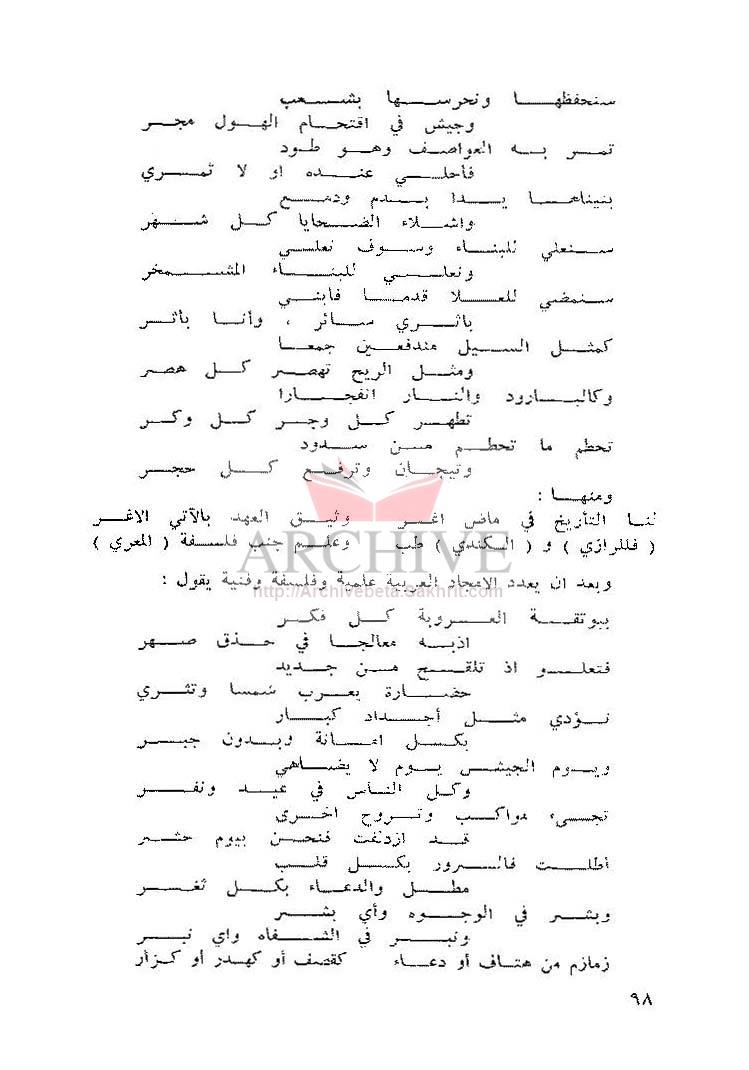 سنحفظها ونحرسها بشعب
وجيش في اقتحام الهول مجر
تمر به العواصف وهو طود
فأحلي عنده او لا تمري
بنيناها يدا بدم ودمع
واشلاء الضحايا كل شهر
سنعلي للبناء وسوف نعلي
ونعلي للبناء المشمخر
سنمضي للعلا قدما فابني
باثري سائر ، وأنا بأثر
كمثل السيل مندفعين جمعا
ومثل الريح تهصر كل هصر
وكالبارود والنار انفجارا
تطهر كل وجر كل وكر
تحطم ما تحطم من سدود
وتيجان وترفع كل حجر
ومنها :
لنا التأريخ في ماض اغر وثيق العهد بالآتي الاغر
( فللرازي ) و ( الكندي ) طب وعلم جنب فلسفة ( المعري )
ARCHIVE
وبعد ان يعدد الامجاد العربية علمية وفلسفة وفنية يقول :
http://Archivebeta.Sakhrit.com
ببوتقة العروبة كل فكر
اذبه معالجا في حذق صهر
فتعلو اذ تلقح من جديد
حضارة يعرب شمسا وتثري
نؤدي مثل أجداد كبار
بكل امانة وبدون جبر
ويوم الجيش يوم لا يضاهي
وكل الناس في عيد ونفر
تجيء مواكب وتروح اخرى
قد ازدلفت فنحن بيوم حشر
أطلت فالسرور بكل قلب
مطل والدعاء بكل ثغر
وبشر في الوجوه وأي بشر
ونبر في الشفاه واي نبر
زمازم من هتاف أو دعاء كقصف أو كهدر أو كزأر
٩٨